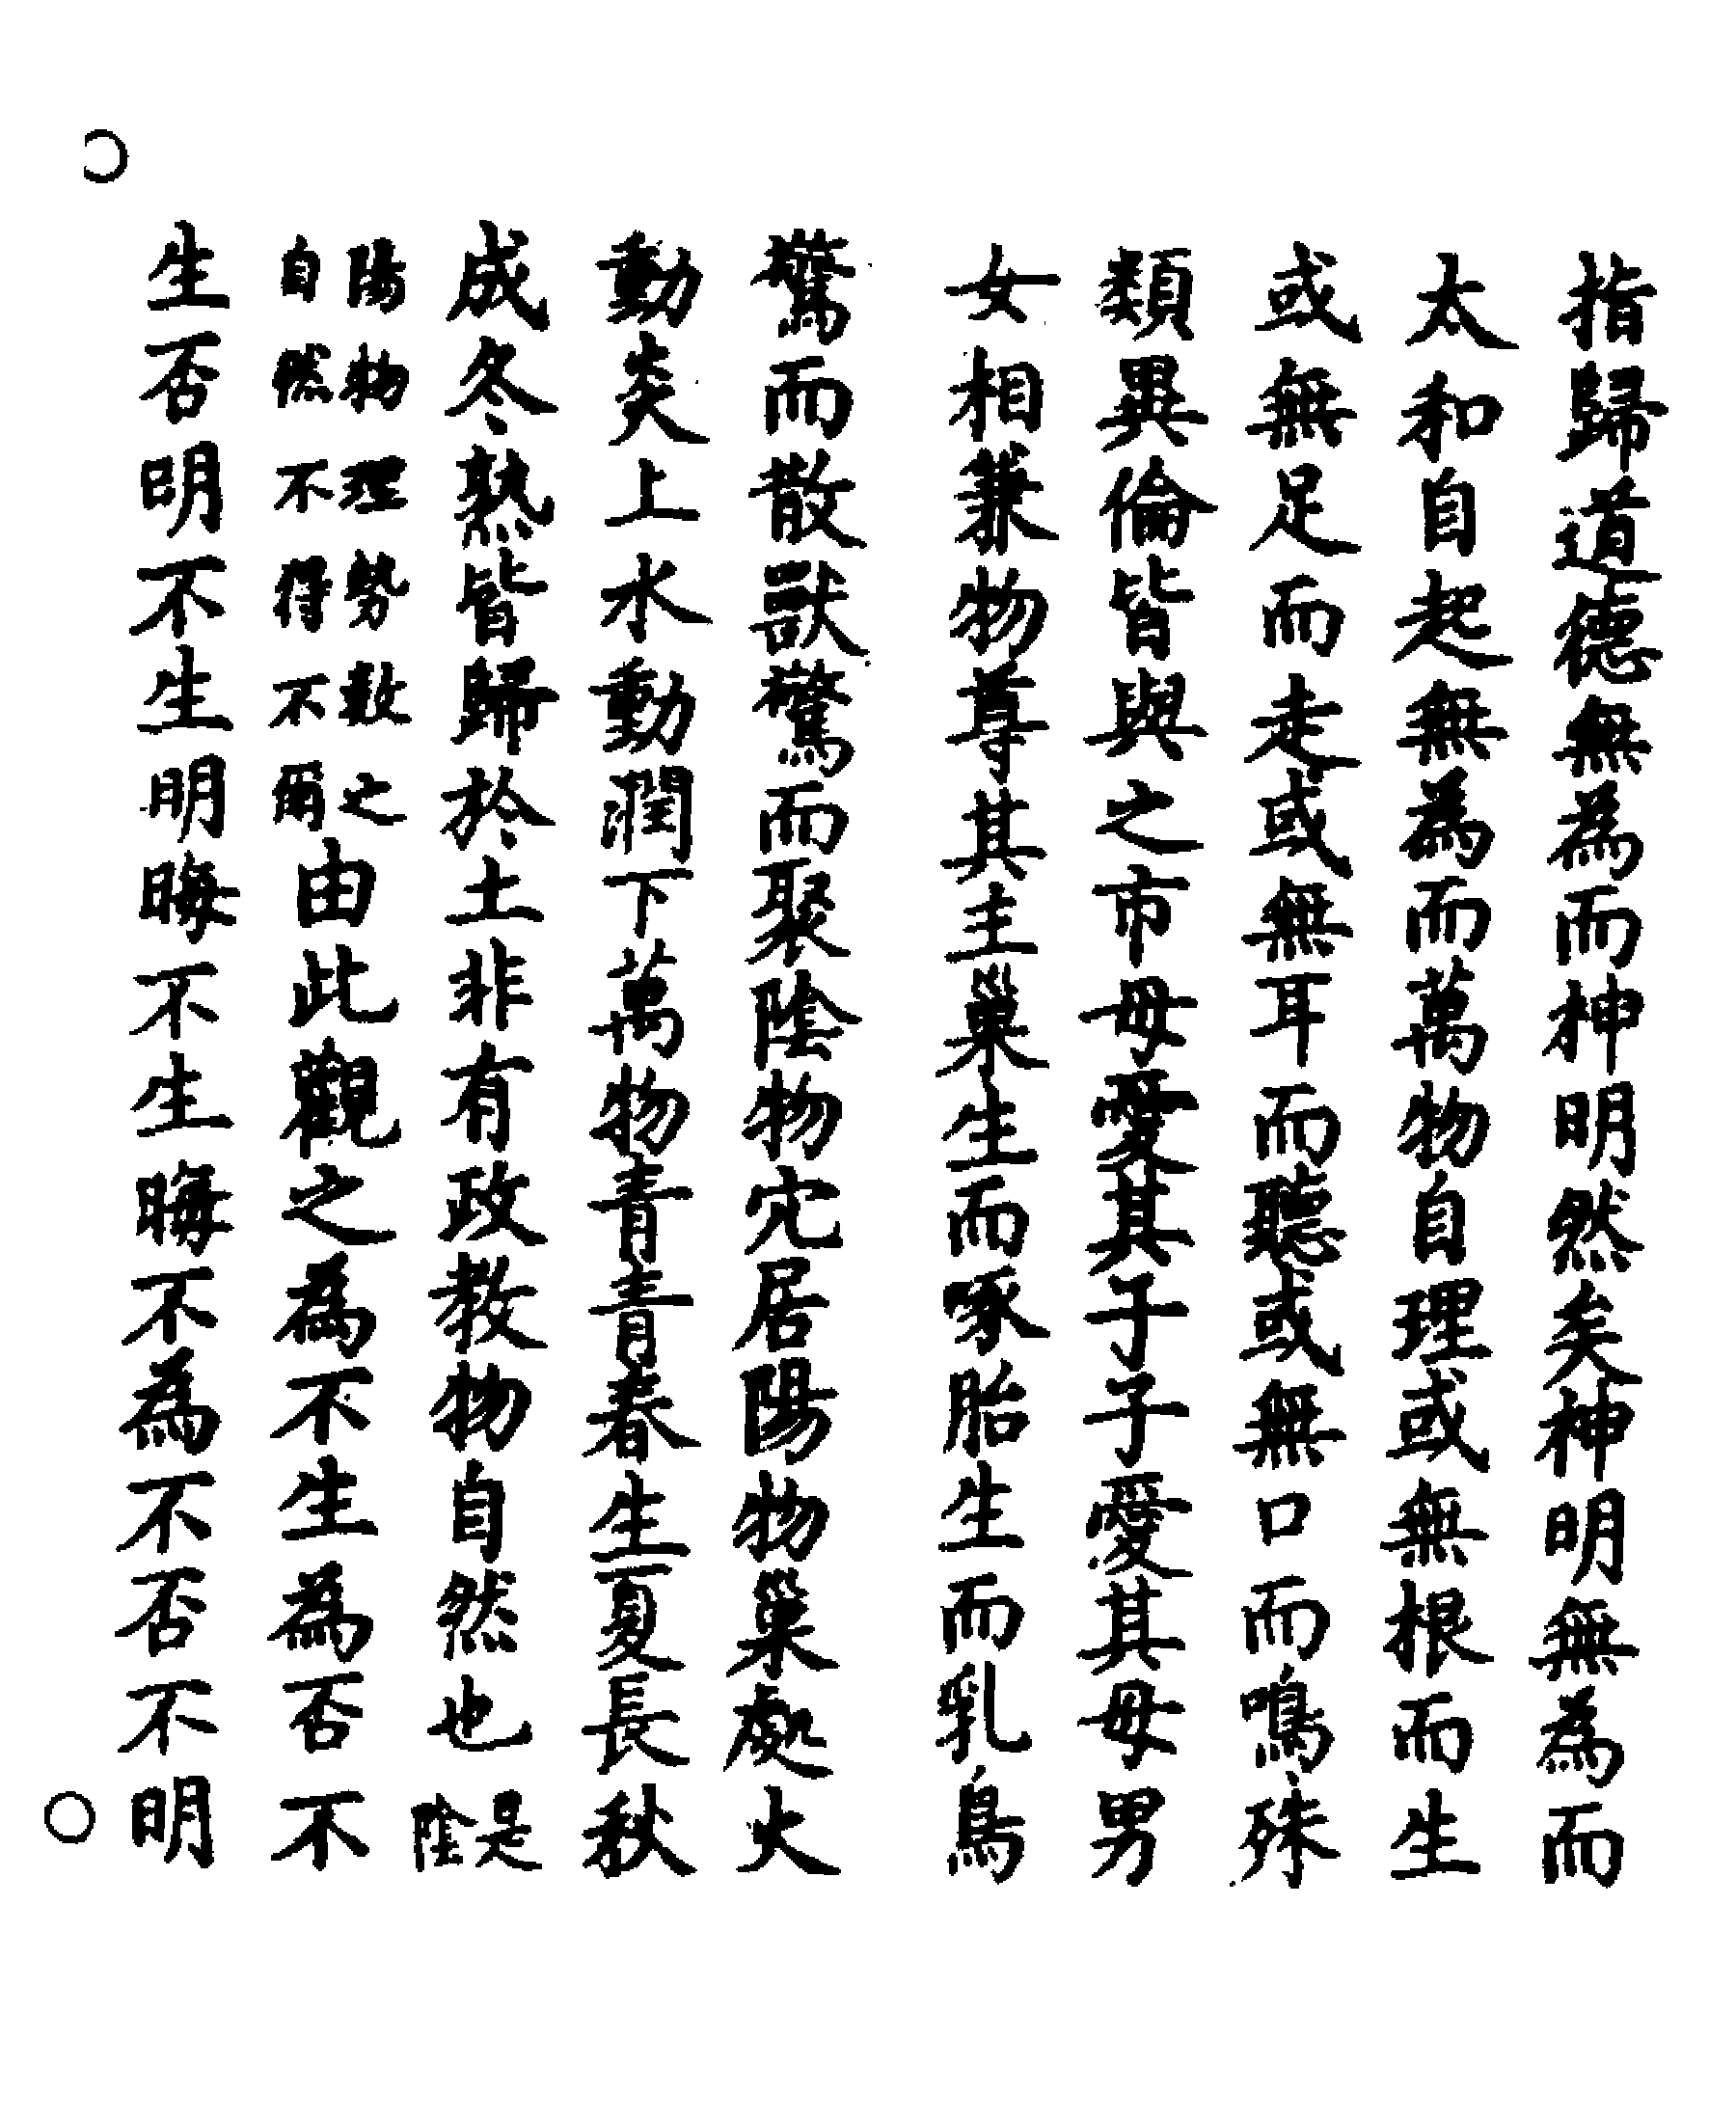 指歸道德無為而神明然矣神明無為而
太和自起無為而萬物自理或無根而生
或無足而走或無耳而聽或無口而鳴殊
類異倫皆與之市母愛其子子愛其母男
女相兼物尊其主巢生而啄胎生而乳鳥
驚而散獸驚而聚陰物穴居陽物巢處火
動炎上水動潤下萬物青青春生夏長秋
成冬熟皆歸於土非有政教物自然也是陰
陽物理勢數之自然不得不爾由此觀之為不生為否不
生否明不生明晦不生晦不為不否不明